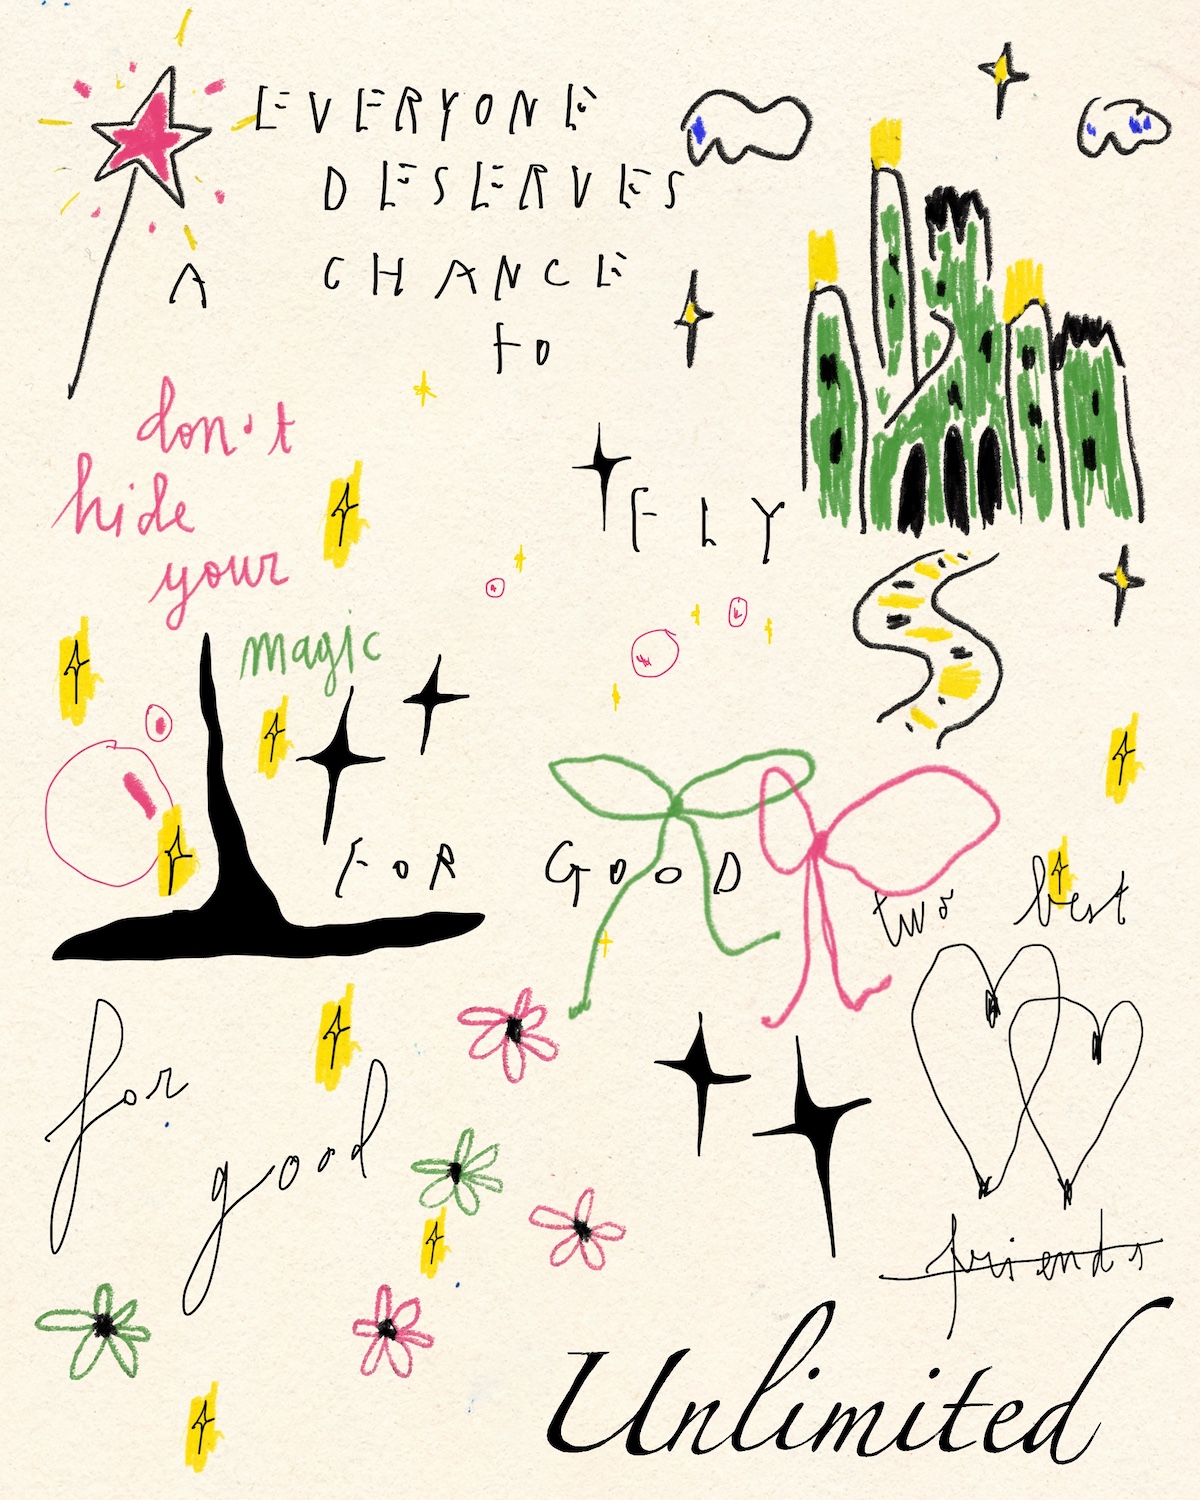 EVERYONE
DESERVES
A CHANCE
TO
FLY
don't
hide
your
magic
FOR GOOD
two best
friends
for
good
Unlimited